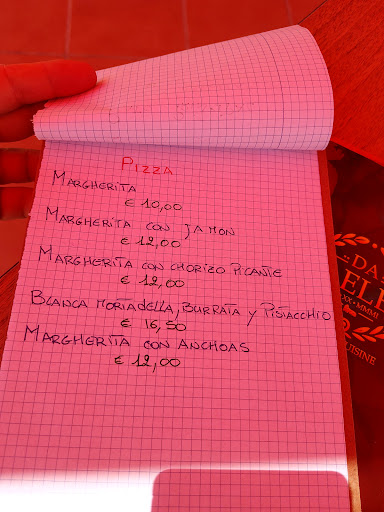 PIZZA
MARGHERITA
€ 10,00
MARGHERITA CON JAMON
€ 12,00
MARGHERITA CON CHORIZO PICANTE
€ 12,00
BLANCA MORTADELLA, BURRATA Y PISTACCHIO
€ 16,50
MARGHERITA CON ANCHOAS
€ 12,00
DA
XX • MMMI